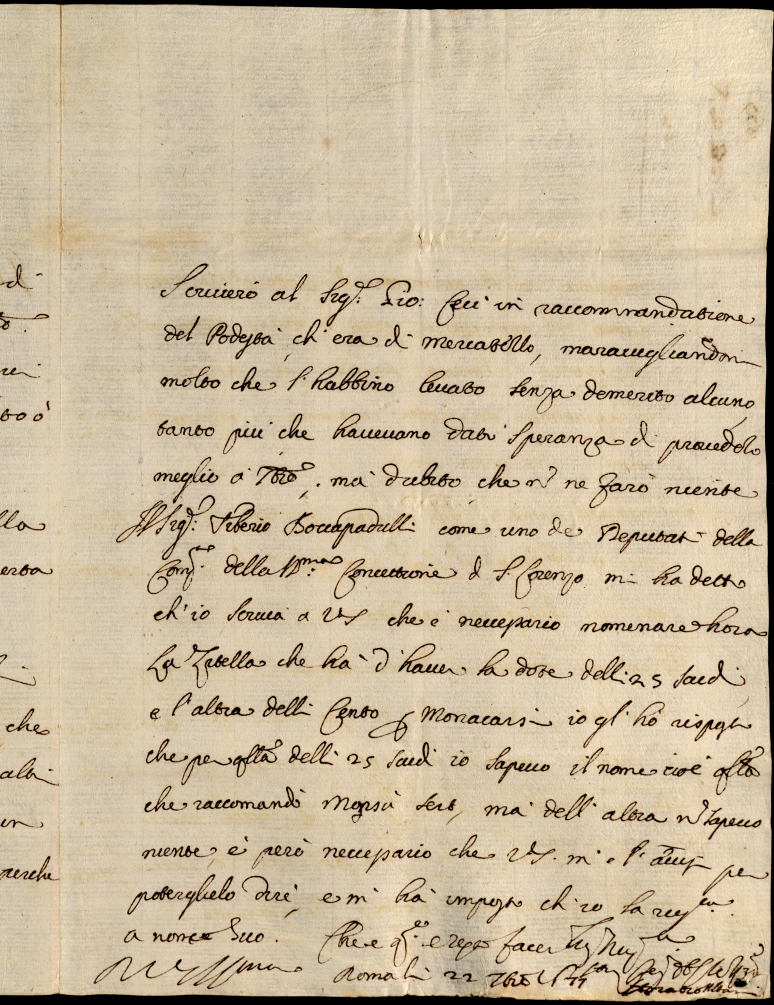 Scriverò al Sig.r Gio: Ceci in raccommandatione
del Podestà, ch'era di mercatello, maravigliandomi
molto che l'habbino levato senza demerito alcuno
tanto più che havevano dati speranza di provederlo
meglio à 7bre, mà dubito che nõ ne farò niente
Il Sig.r Tiberio Boccapadulli come uno de Deputati della
della Concettione di S. Lorenzo mi ha detto
ch'io scriva a VS che è necessario nomenare hora
La Zitella che hà d'haver la dote delli 25 scudi
e l'altra delli Cento Monacarsi io gl'hò risposto
che per qlla delli 25 scudi io sapevo il nome cioè qlla
che raccomandò, mà dell'altra nõ sapevo
niente, è però necessario che VS. mi l'avisi per
poterglielo dire, e mi hà imposto ch'io la
a nome suo. Che è q.to e resto
Roma li 22 7bre